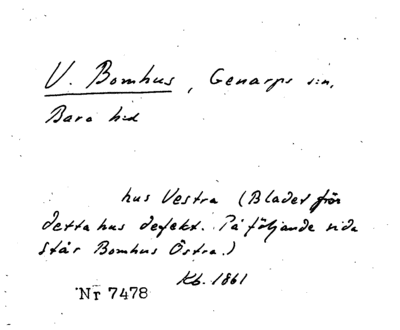 V. Bomhus, Genarps s:n,
Bara hd
hus Vestra (Bladet från
detta hus defekt. På följande sida
står Bomhus Östra.)
Kb. 1861
Nr 7478